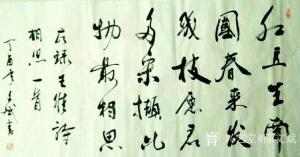 红豆生南
國春来发
几枝愿君
多采撷此
物最相思
右録王维诗
相思一首
丁酉